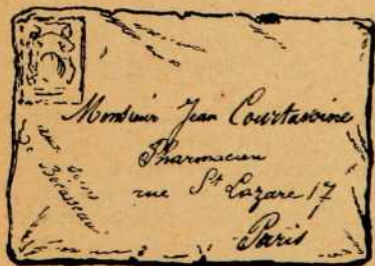 Monsieur Jean Courtavoine
Pharmacien
rue St Lazare 17
Paris
aux soins